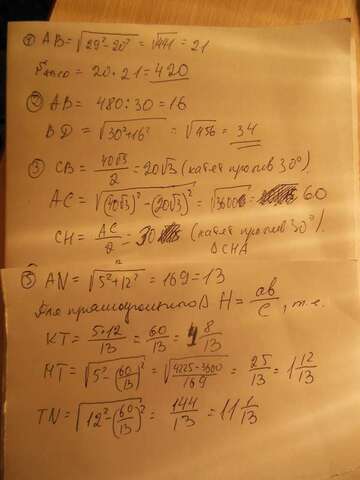 ① AB = √(29² - 20²) = √441 = 21
Sавсо = 20 · 21 = 420
② AB = 480 : 30 = 16
BD = √(30² + 16²) = √1156 = 34
③ CB = 40√3/2 = 20√3 (катет против 30°)
AC = √((40√3)² - (20√3)²) = √3600 = 60
CH = AC/2 = 30 (катет против 30°)
ΔCHA
⑤ AN = √(5² + 12²) = 169 = 13
Для прямоугольного Δ H = ab/c, т.е.
KT = 5·12/13 = 60/13 = 4 8/13
MT = √(5² - (60/13)²) = √((4225 - 3600)/169) = 25/13 = 1 12/13
TN = √(12² - (60/13)²) = 144/13 = 11 1/13